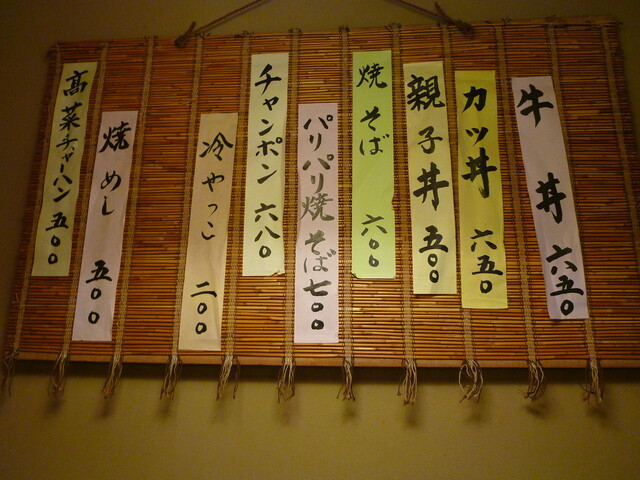 牛丼 六五〇
カツ丼 六五〇
親子丼 五〇〇
焼そば 六〇〇
パリパリ焼そば七〇〇
チャンポン 六八〇
冷やっこ 二〇〇
焼めし 五〇〇
高菜チャーハン 五〇〇